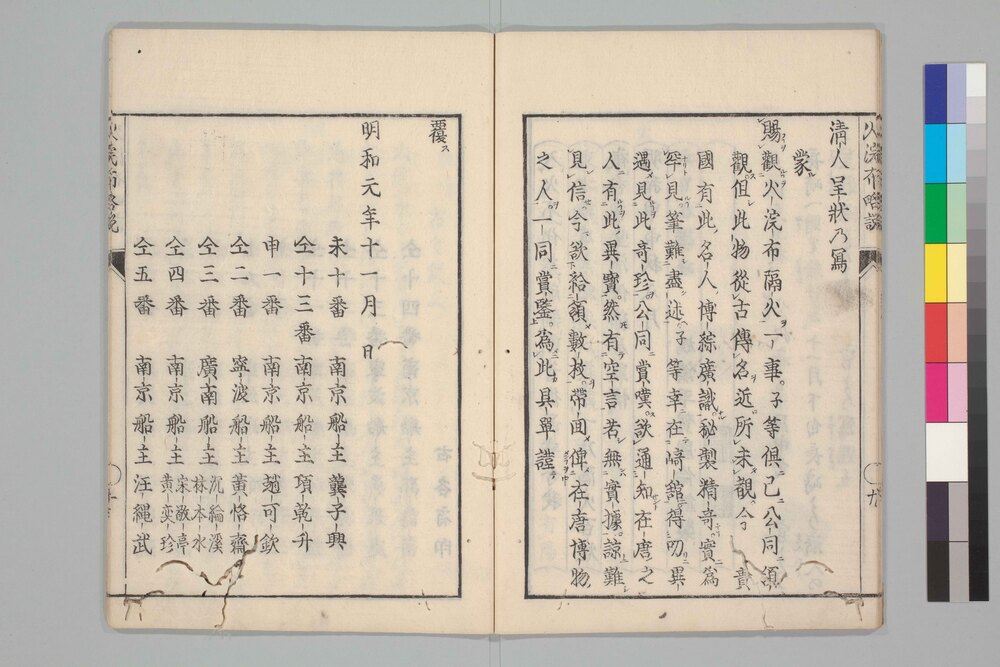 清人呈状乃寫
蒙
賜觀火浣布隔火一事子等倶己公同領
觀但此物從古傳名近所未覩今貴
國有此名人博綜廣識秘製精奇實爲
罕見筆難盡述子等幸在崎舘得叨異
遇見此奇珍公同賞嘆欲通知在唐之
人有此異寶然有空言者無實據諒難
見信今欲給領數枚帶回俾在唐博物
之人一同賞鑒爲此具單證
覆ス
明和元年十一月日
未十番 南京船主 龔子興
仝十三番 南京船主 項乾升
申一番 南京船主 趙可欽
仝二番 寧波船主 黃恪齋
仝三番 廣南船主 沉綸溪 林本水
仝四番 南京船主 宋敬亭 黄奕珍
仝五番 南京船主 汪繩武
火浣布略説